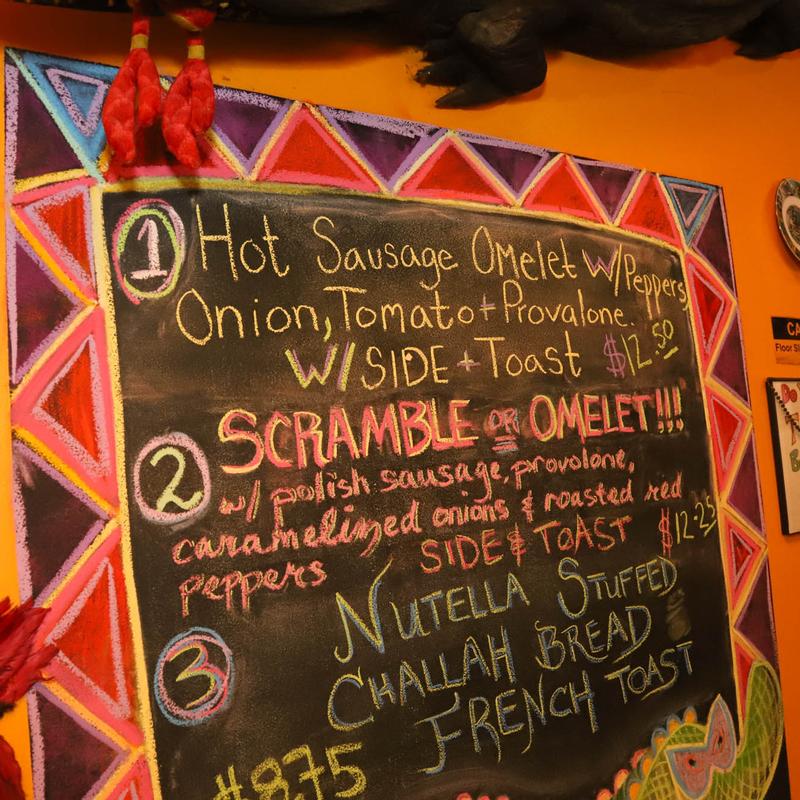 1 Hot Sausage Omelet w/Peppers,
Onion, Tomato + Provalone.
W/ SIDE + Toast $12.50
2 SCRAMBLE OR OMELET!!!
w/ polish sausage, provolone,
caramelized onions & roasted red
peppers SIDE & TOAST $12.25
3 NUTELLA STUFFED
CHALLAH BREAD
FRENCH TOAST
$8.75
CA
Floor Sl
Do